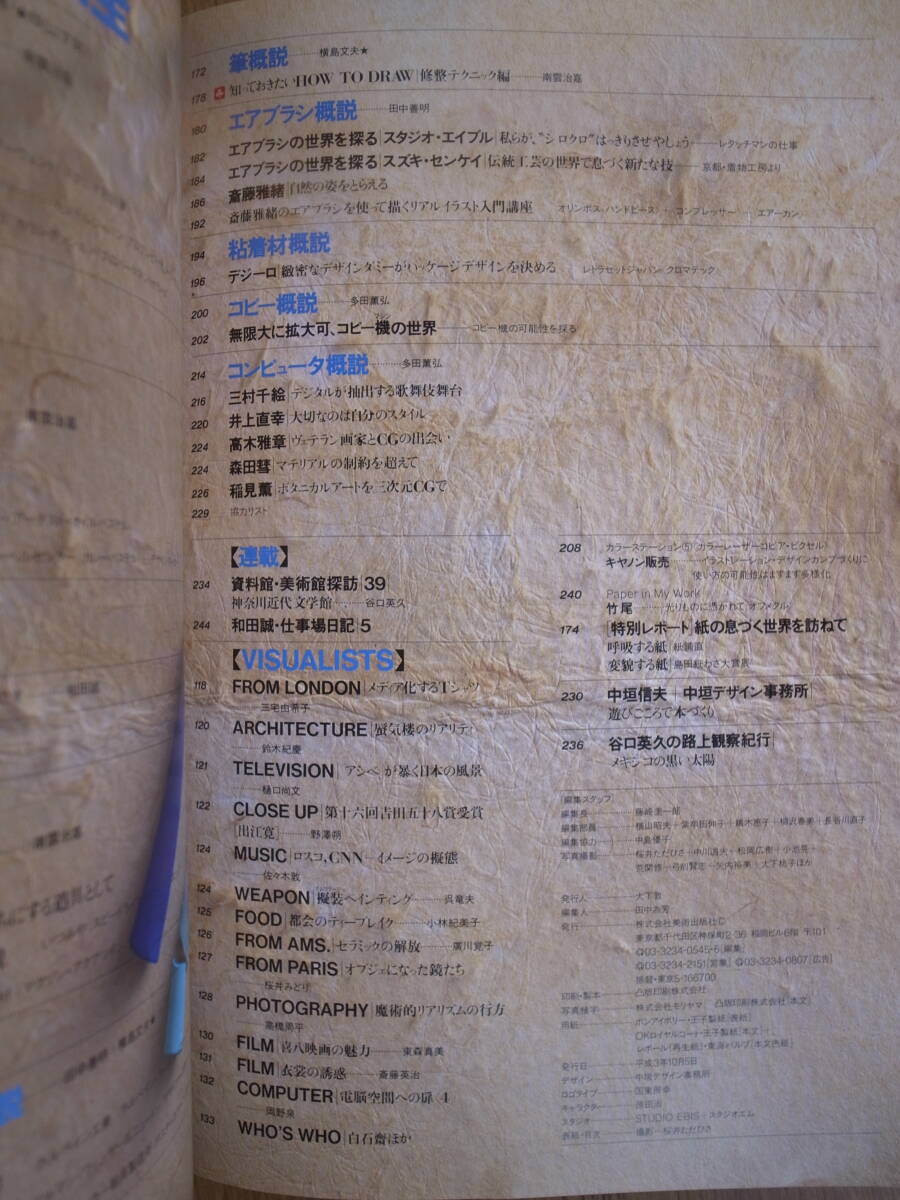 172 筆概説………横島文夫★
178 知っておきたい HOW TO DRAW|修整テクニック編――南雲治嘉
180 エアブラシ概説………田中善明
182 エアブラシの世界を探る|スタジオ・エイブル|私らが、"シロクロ"はっきりさせやしょう――レタッチマンの仕事
184 エアブラシの世界を探る|スズキ・センケイ|伝統工芸の世界で息づく新たな技――京都・着物工房より
186 斎藤雅緒|自然の姿をとらえる
192 斎藤雅緒のエアブラシを使って描くリアルイラスト入門講座 オリンポス ハンドピース・コンプレッサー エアーカン
194 粘着材概説
196 デジーロ|緻密なデザインダミーがパッケージデザインを決める レトラセットジャパン クロマテック
200 コピー概説………多田薫弘
202 無限大に拡大可、コピー機の世界――コピー機の可能性を探る
214 コンピュータ概説………多田薫弘
216 三村千絵|デジタルが抽出する歌舞伎舞台
220 井上直幸|大切なのは自分のスタイル
224 高木雅章|ヴェテラン画家とCGの出会い
224 森田彗|マテリアルの制約を超えて
226 稲見薫|ボタニカルアートを三次元CGで
229 協力リスト
【連載】
234 資料館・美術館探訪|39
神奈川近代文学館………谷口英久
244 和田誠・仕事場日記|5
【VISUALISTS】
118 FROM LONDON|メディア化するTシャツ
――三宅由希子
120 ARCHITECTURE|蜃気楼のリアリティ
――鈴木紀慶
121 TELEVISION|「アンベ」が暴く日本の風景
――樋口尚文
122 CLOSE UP|第十六回吉田五十八賞受賞
[出江寛]――野澤朔
124 MUSIC|ロスコ、CNN―イメージの擬態
――佐々木敦
124 WEAPON|擬装ペインティング――呉竜夫
125 FOOD|都会のティーブレイク………小林紀美子
126 FROM AMS.|セラミックの解放――廣川暁子
127 FROM PARIS|オブジェになった鏡たち
――桜井みどり
128 PHOTOGRAPHY|魔術的リアリズムの行方
――高橋周平
130 FILM|喜八映画の魅力――東森真美
131 FILM|衣裳の誘惑――斎藤英治
132 COMPUTER|電脳空間への扉 4
――岡野泉
133 WHO'S WHO|白石齋ほか
208 カラーステーション⑤〈カラーレーザーコピア・ピクセル〉
キヤノン販売――イラストレーション・デザインカンプづくりに
使い方の可能性はますます多様化
240 Paper in My Work
竹尾――光りものに憑かれて オフメタル
174 [特別レポート]紙の息づく世界を訪ねて
呼吸する紙
変貌する紙
230 中垣信夫+中垣デザイン事務所|
遊びごころで本づくり
236 谷口英久の路上観察紀行|
メキシコの黒い太陽
[編集スタッフ]
編集長――藤崎圭一郎
編集部員――横山昭夫+紫牟田伸子+橋木恵子+柳沢春美+長谷川直子
編集協力――中島優子
写真撮影――桜井ただひさ+中川道夫+松岡広樹+小池亮+
弓削賢志+矢内裕美+大下桃子ほか
発行人――大下敦
編集人――田中為芳
発行――株式会社美術出版社©
東京都千代田区神保町2-36 稲岡ビル6階 〒101
03-3234-0545-6[編集]
03-3234-2151[営業] 03-3234-0807[広告]
振替・東京5-166700
印刷・製本――凸版印刷株式会社
写真植字――株式会社モリヤマ 凸版印刷株式会社[本文]
用紙――ボンアイボリー・王子製紙[表紙]
OKロイヤルコート・王子製紙[本文]
レポール[再生紙]・東海パルプ[本文色紙]
発行日――平成3年10月5日
デザイン――中垣デザイン事務所
ロゴタイプ
キャラクター――原田治
スタジオ――STUDIO EBIS+スタジオエム
表紙・目次――撮影―桜井ただひさ